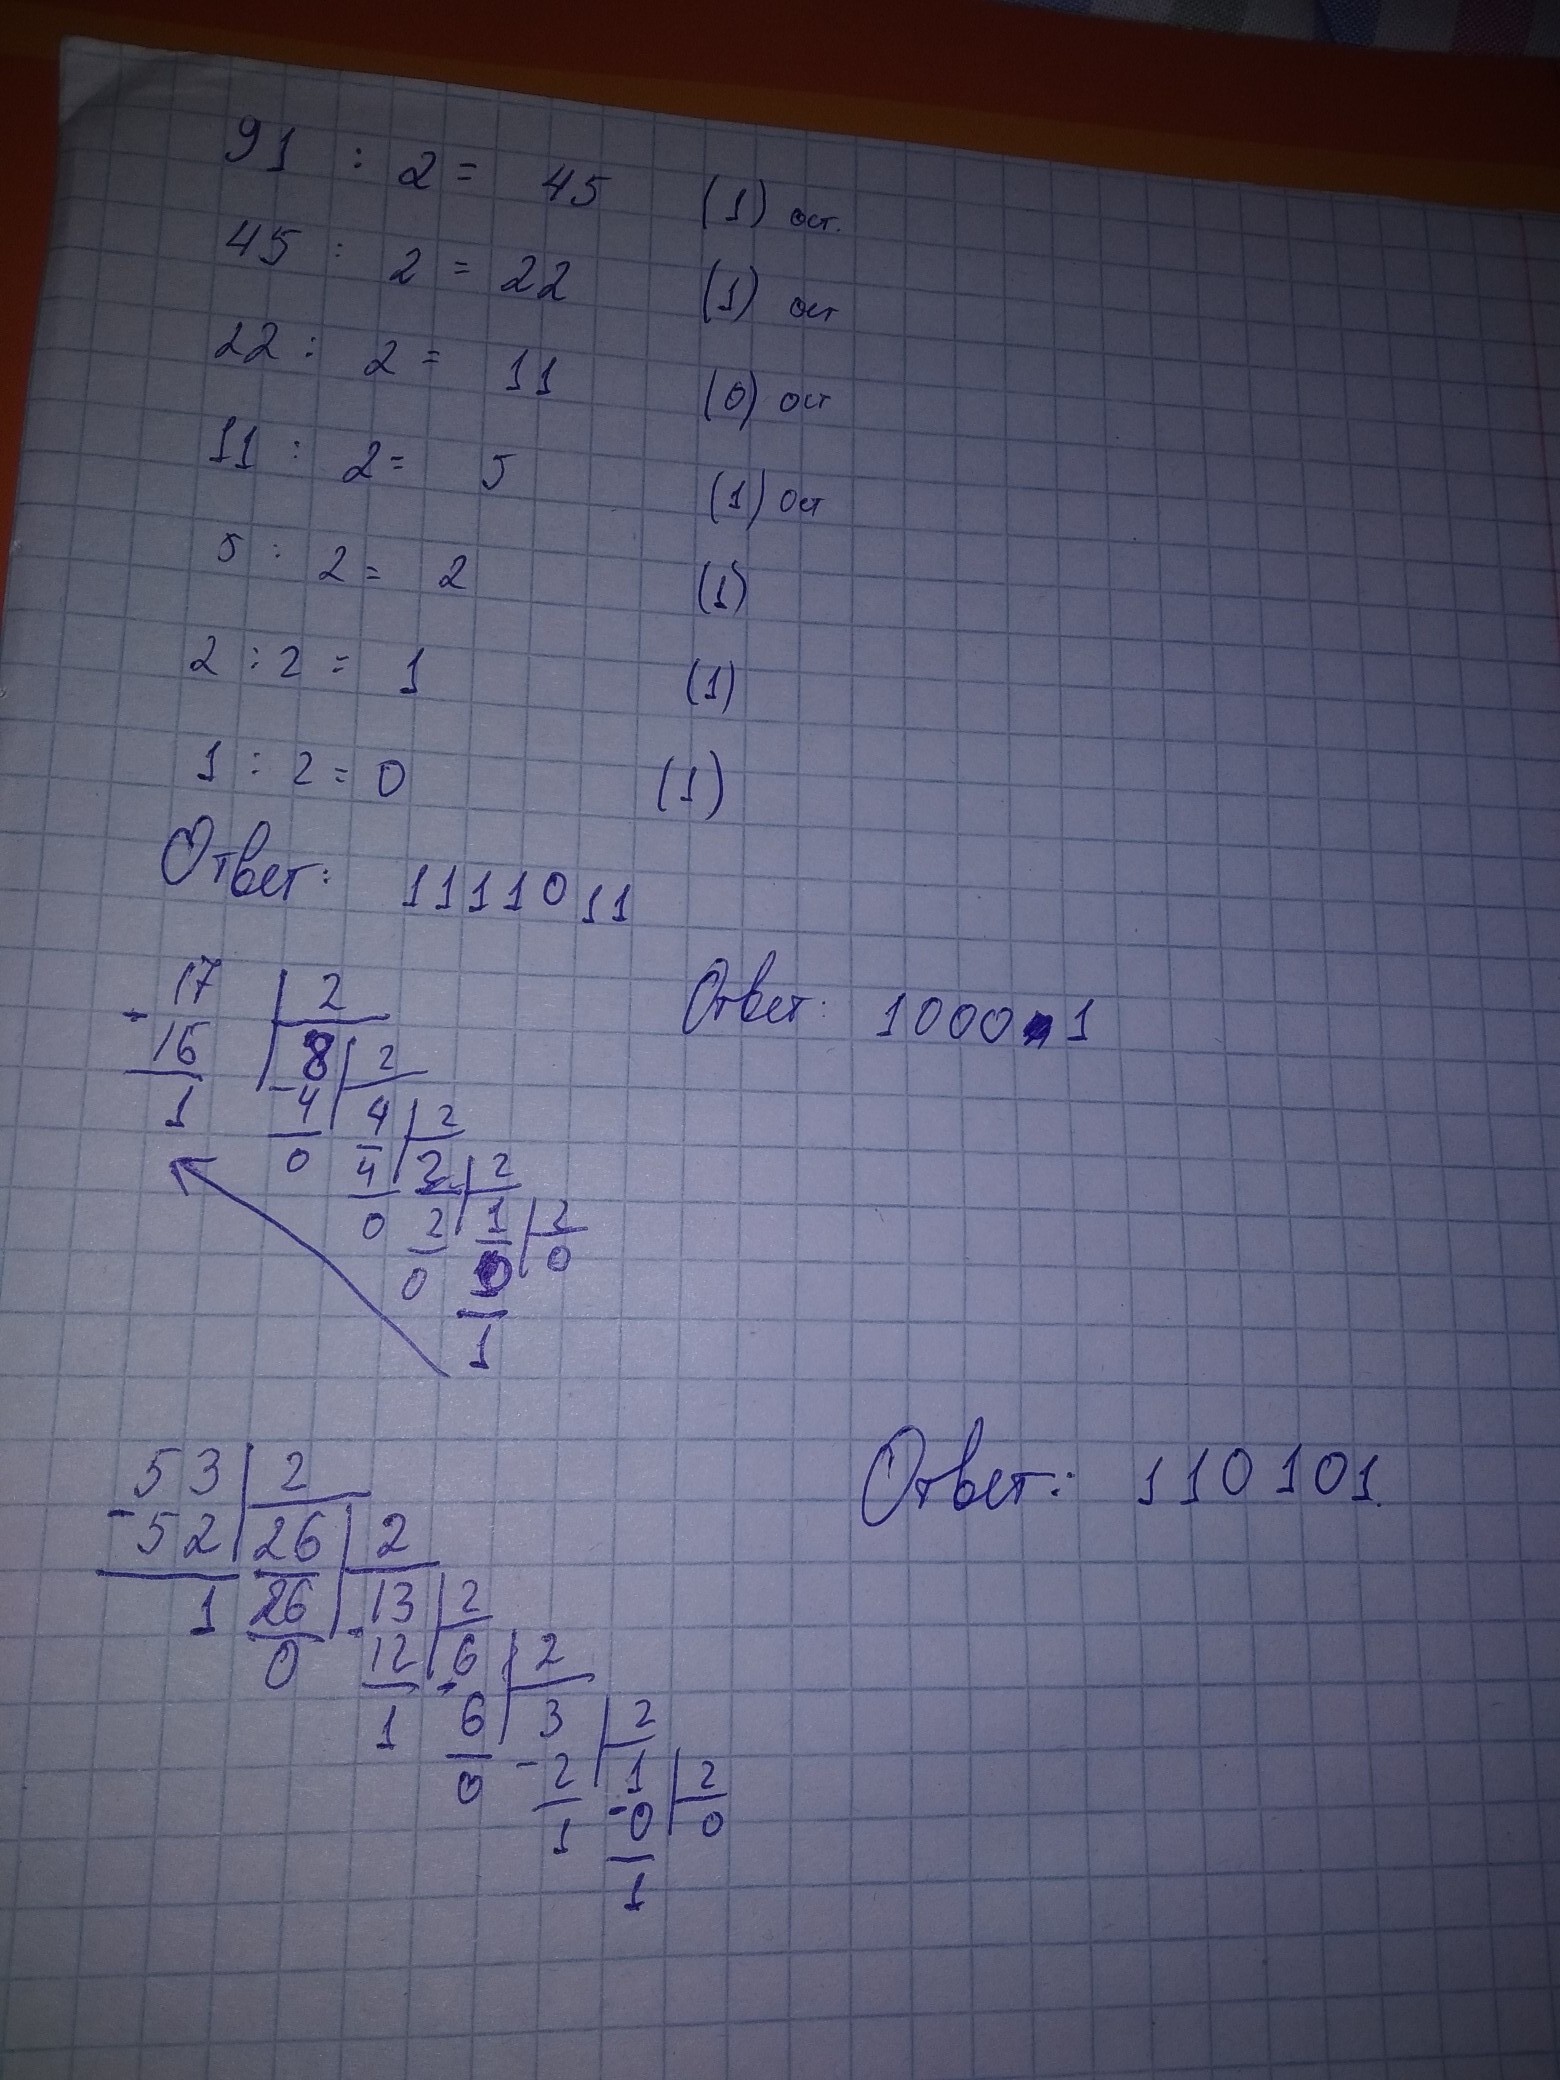 91 : 2 = 45 (1) ост.
45 : 2 = 22 (1) ост
22 : 2 = 11 (0) ост
11 : 2 = 5 (1) ост
5 : 2 = 2 (1)
2 : 2 = 1 (1)
1 : 2 = 0 (1)
Ответ: 1111011
17 2 Ответ: 10001
- 16 8 2
1 - 4 4 2
0 4 2 2
0 2 1 2
0 0 0
1
53 2 Ответ: 110101.
- 52 26 2
1 26 - 13 2
0 12 6 2
1 - 6 3 2
0 - 2 1 2
1 - 0 0
1